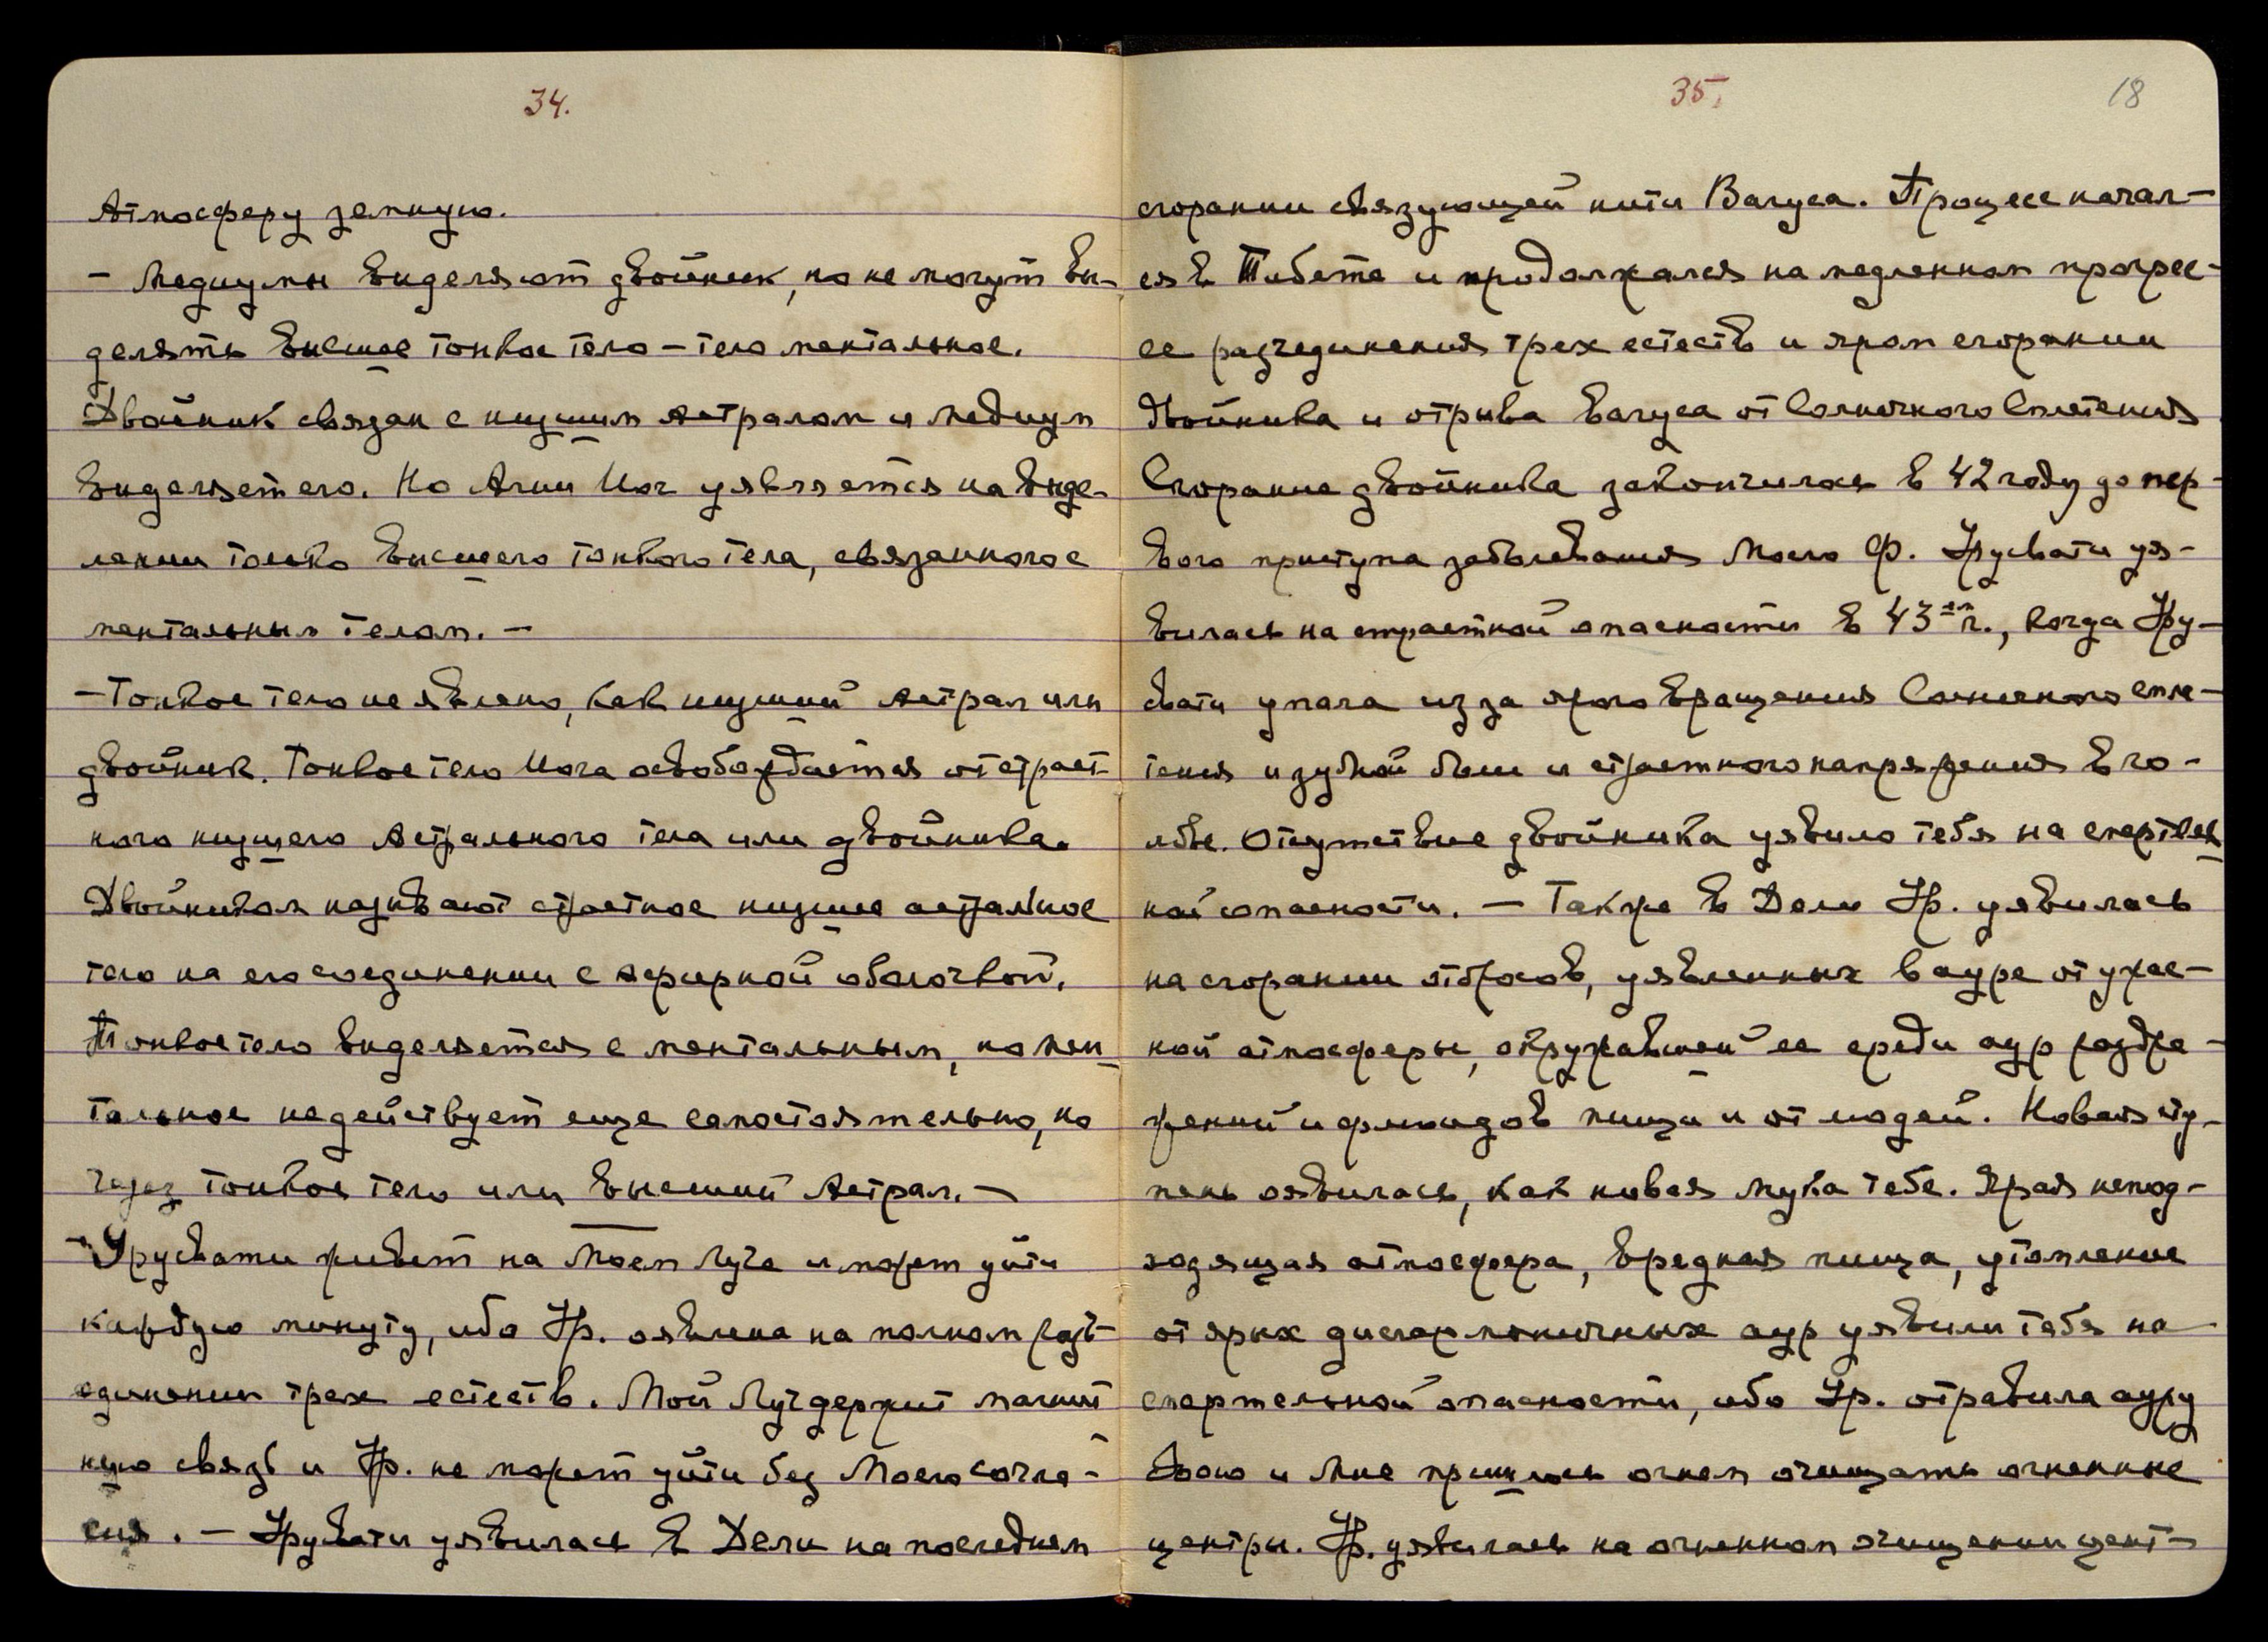 34.
Атмосферу земную.
— Медиумы выделяют двойник, но не могут вы-
делять высшее тонкое тело – тело ментальное.
Двойник связан с низшим Астралом и медиум
выделяет его. Но Агни Иог уявляется на выде-
лении только высшего тонкого тела, связанного с
ментальным телом. —
— Тонкое тело не явлено, как низший Астрал или
двойник. Тонкое тело Иога освобождается от страст-
ного низшего Астрального тела или двойника.
Двойником называют страстное низшее астральное
тело на его соединении с эфирной оболочкой.
Тонкое тело выделяется с ментальным, но мен-
тальное не действует еще самостоятельно, но
через тонкое тело или высший Астрал. —
— Урусвати живет на Моем Луче и может уйти
каждую минуту, ибо Ур. оявлена на полном разъ-
единении трех естеств. Мой Луч держит магнит
ную связь и Ур. не может уйти без Моего согла-
сия. — Урусвати уявилась в Дели на последнем
35. 18
сгорании связующей нити Вагуса. Процесс начал-
ся в Тибете и продолжался на медленном прогрес-
се разъединения трех естеств и яром сгорании
двойника и отрыва Вагуса от Солнечного Сплетения
Сгорание двойника закончилось в 42 году до пер-
вого приступа заболевания Моего Ф. Урусвати уя-
вилась на страстной опасности в 43ем г., когда Уру-
свати упала из за ярого вращения Солнечного спле-
тения и зубной боли и страстного напряжения в го-
лове. Отсутствие двойника уявило тебя на смертель
ной опасности. — Также в Дели Ур. уявилась
на сгорании отбросов, уявленных в ауре от ужас-
ной атмосферы, окружавшей ее среди аур раздра-
жений и флюидов пищи и от людей. Новая сту-
пень оявилась, как новая мука тебе. Ярая непод-
ходящая атмосфера, вредная пища, утомление
от ярых дисгармоничных аур уявили тебя на
смертельной опасности, ибо Ур. отравила ауру
свою и Мне пришлось огнем очищать огненные
центры. Ур. уявилась на огненном очищении цент-